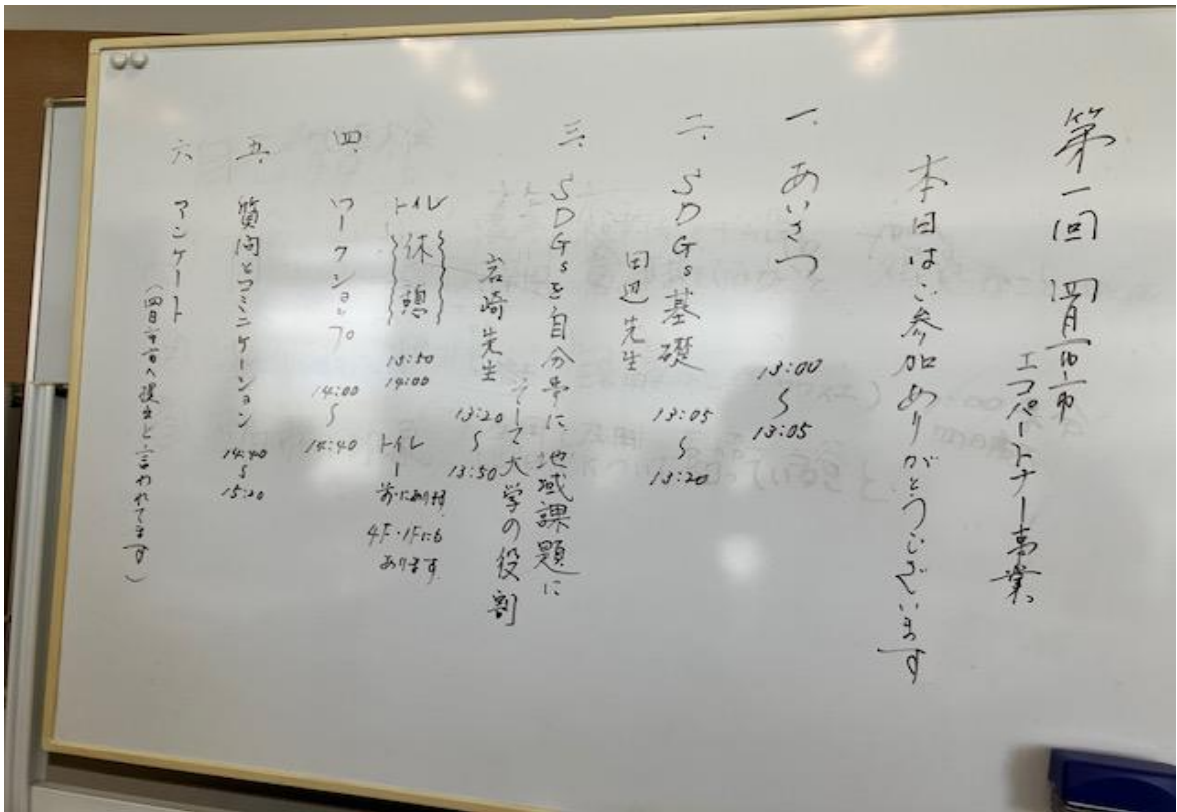 第一回 四日市市
エコパートナー事業
本日はご参加ありがとうございます
一、あいさつ 13:00 〜 13:05
二、SDGs基礎 13:05 〜 13:20
田辺先生
三、SDGsを自分事に 地域課題に
そして大学の役割
岩崎先生 13:20 〜 13:50
トイレ休憩 13:50 14:00
トイレ
前にあります
4F・1Fにも
あります
四、ワークショップ 14:00 〜 14:40
五、質問とコミニケーション 14:40 〜 15:20
六、アンケート
(四日市市へ提出と言われてます)